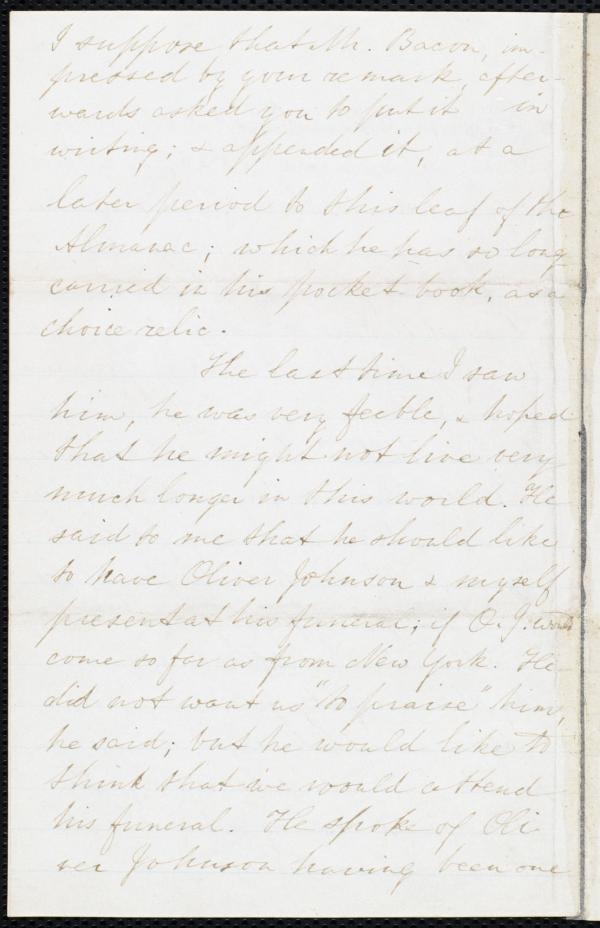 I suppose that Mr. Bacon, im-
pressed by your remark, after-
wards asked you to put it in
writing; & appended it, at a
later period to this leaf of the
Almanac; which he has so long
carried in his pocket-book, as a
choice relic.
The last time I saw
him, he was very feeble, & hoped
that he might not live very
much longer in this world. He
said to me that he should like
to have Oliver Johnson & myself
present at his funeral; if O. J. would
come so far as from New York. He
did not want us "to praise" him,
he said; but he would like to
think that we would attend
his funeral. He spoke of Oli
ver Johnson having been one